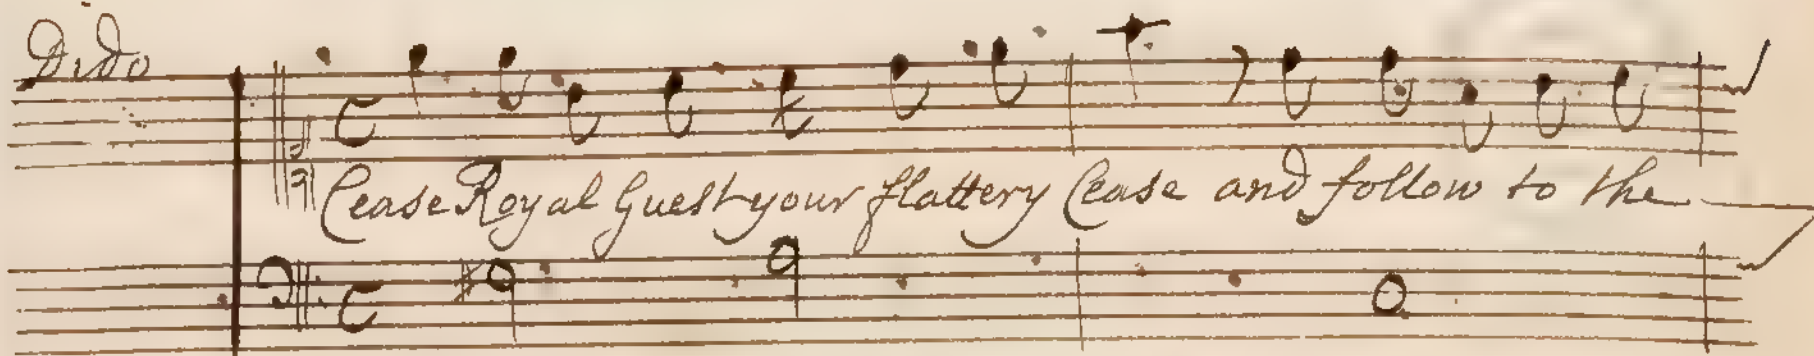 Dido
Cease Royal Guest your flattery Cease and follow to the